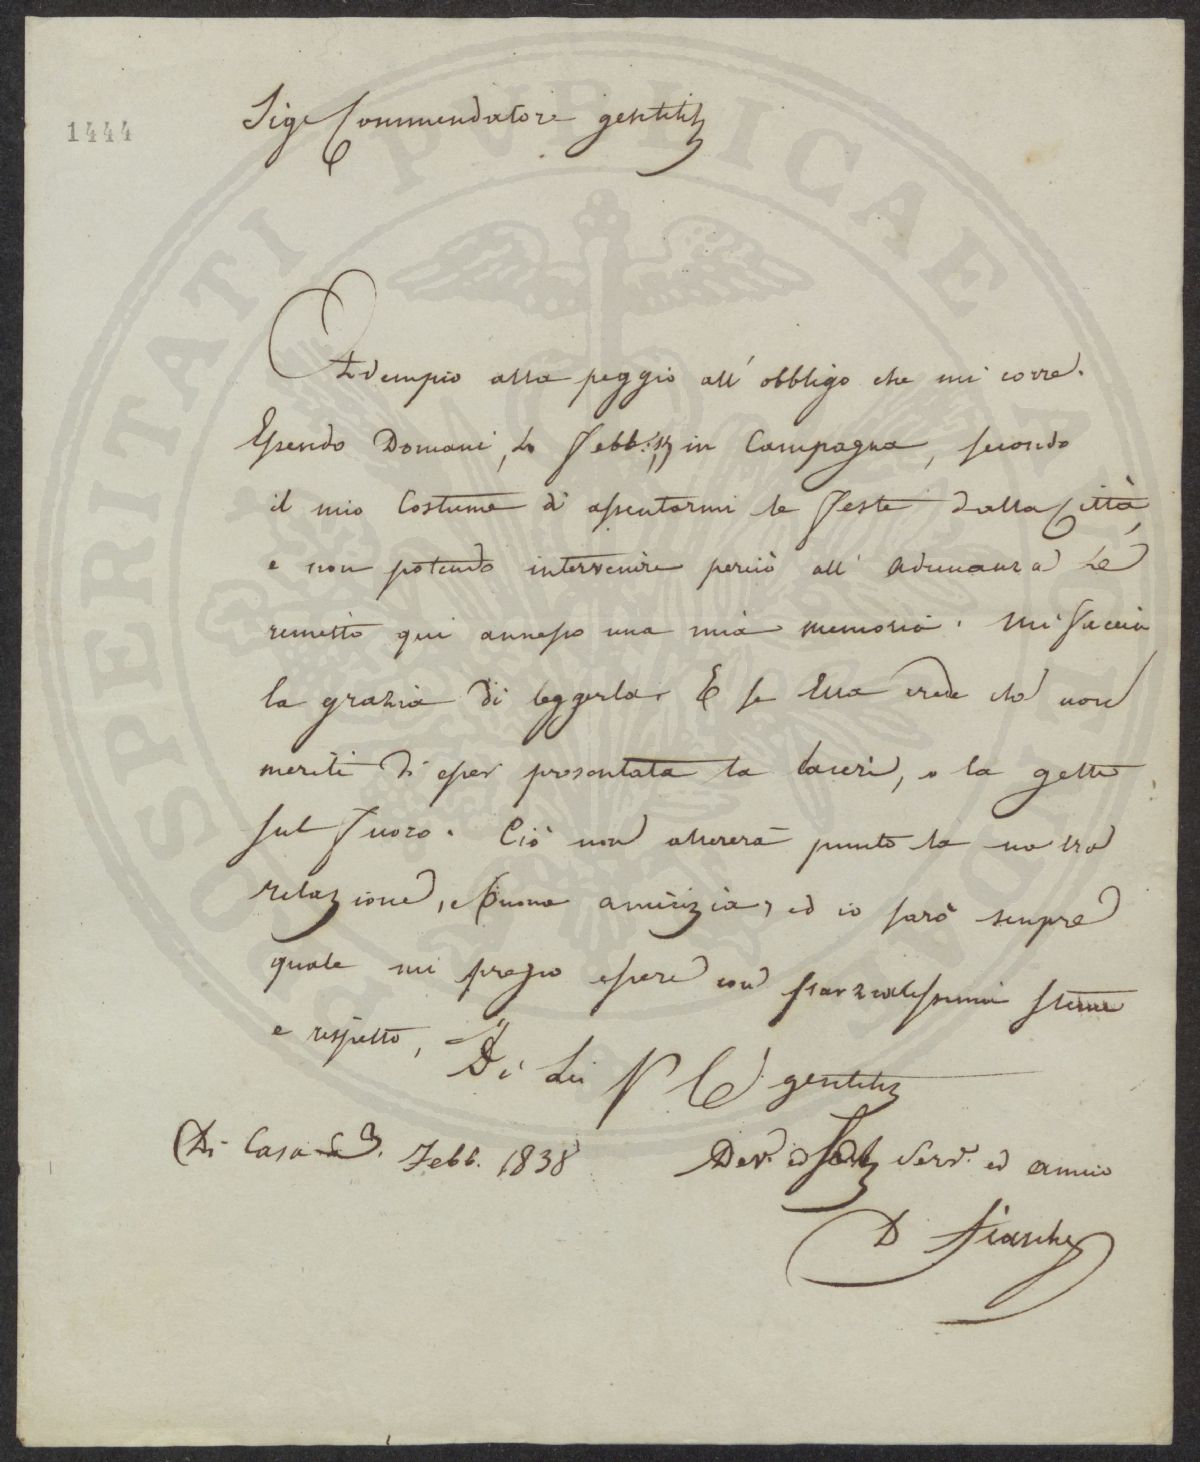 1444
Sig.r Commendatore gentiliss.
Adempio alla peggio all' obbligo che mi corre.
Essendo Domani, in Campagna, secondo
il mio Costume di assentarmi le Feste dalla Città,
e non potendo intervenire perciò all' adunanza Le
rimetto qui annesso una mia memoria. Mi faccia
la grazia di leggerla. E se Ella crede che non
meriti di esser presentata la laceri, o la getti
sul Fuoco. Ciò non altererà punto la nostra
relazione, e buona amicizia, ed io sarò sempre
quale mi pregio essere con parzialissima stima
e rispetto,
Di Lei gentiliss.
Di Casa 3. Febb. 1838
Dev. ed Serv. ed amico
D
PROSPERITATI PVBLICAE